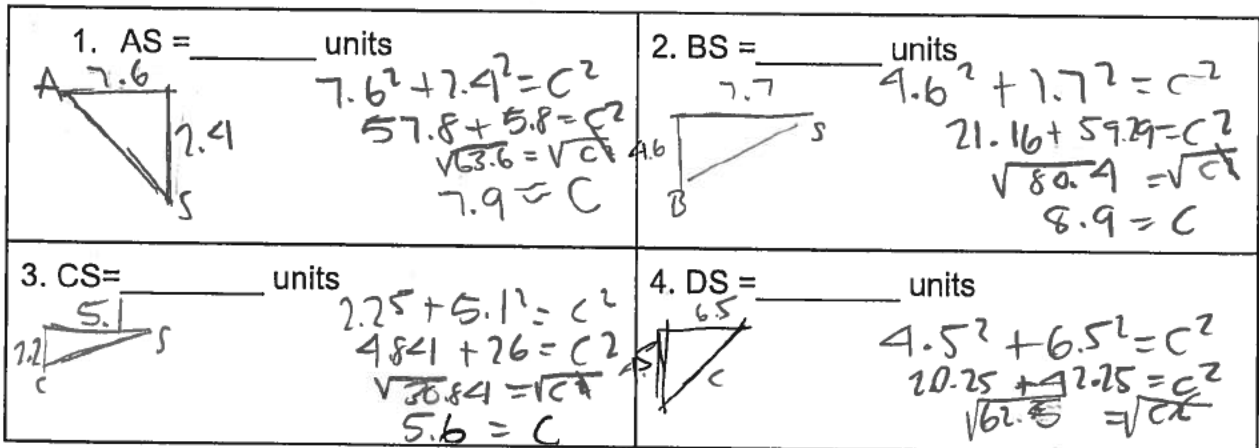 1. AS = ______ units
A 7.6
2.4
S
7.6² + 2.4² = C²
57.8 + 5.8 = C²
√63.6 = √C²
7.9 = C
2. BS = ______ units
7.7
4.6
S
B
4.6² + 7.7² = C²
21.16 + 59.29 = C²
√80.4 = √C²
8.9 = C
3. CS= ______ units
5.1
2.2
S
C
2.2⁵ + 5.1² = C²
4841 + 26 = C²
√30.841 = √C²
5.6 = C
4. DS = ______ units
6.5
C
4.5² + 6.5² = C²
20.25 + 42.25 = C²
= √C²